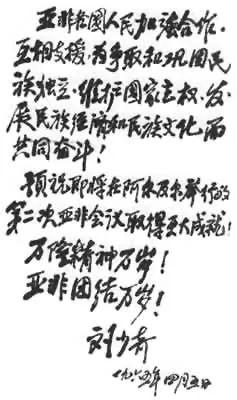 亚非各国人民加强合作，
互相支援，为争取和巩固民
族独立、维护国家主权、发
展民族经济和民族文化而
共同奋斗！
预祝即将在阿尔及尔举行的
第二次亚非会议取得更大成就！
万隆精神万岁！
亚非团结万岁！
刘少奇
一九六五年四月五日